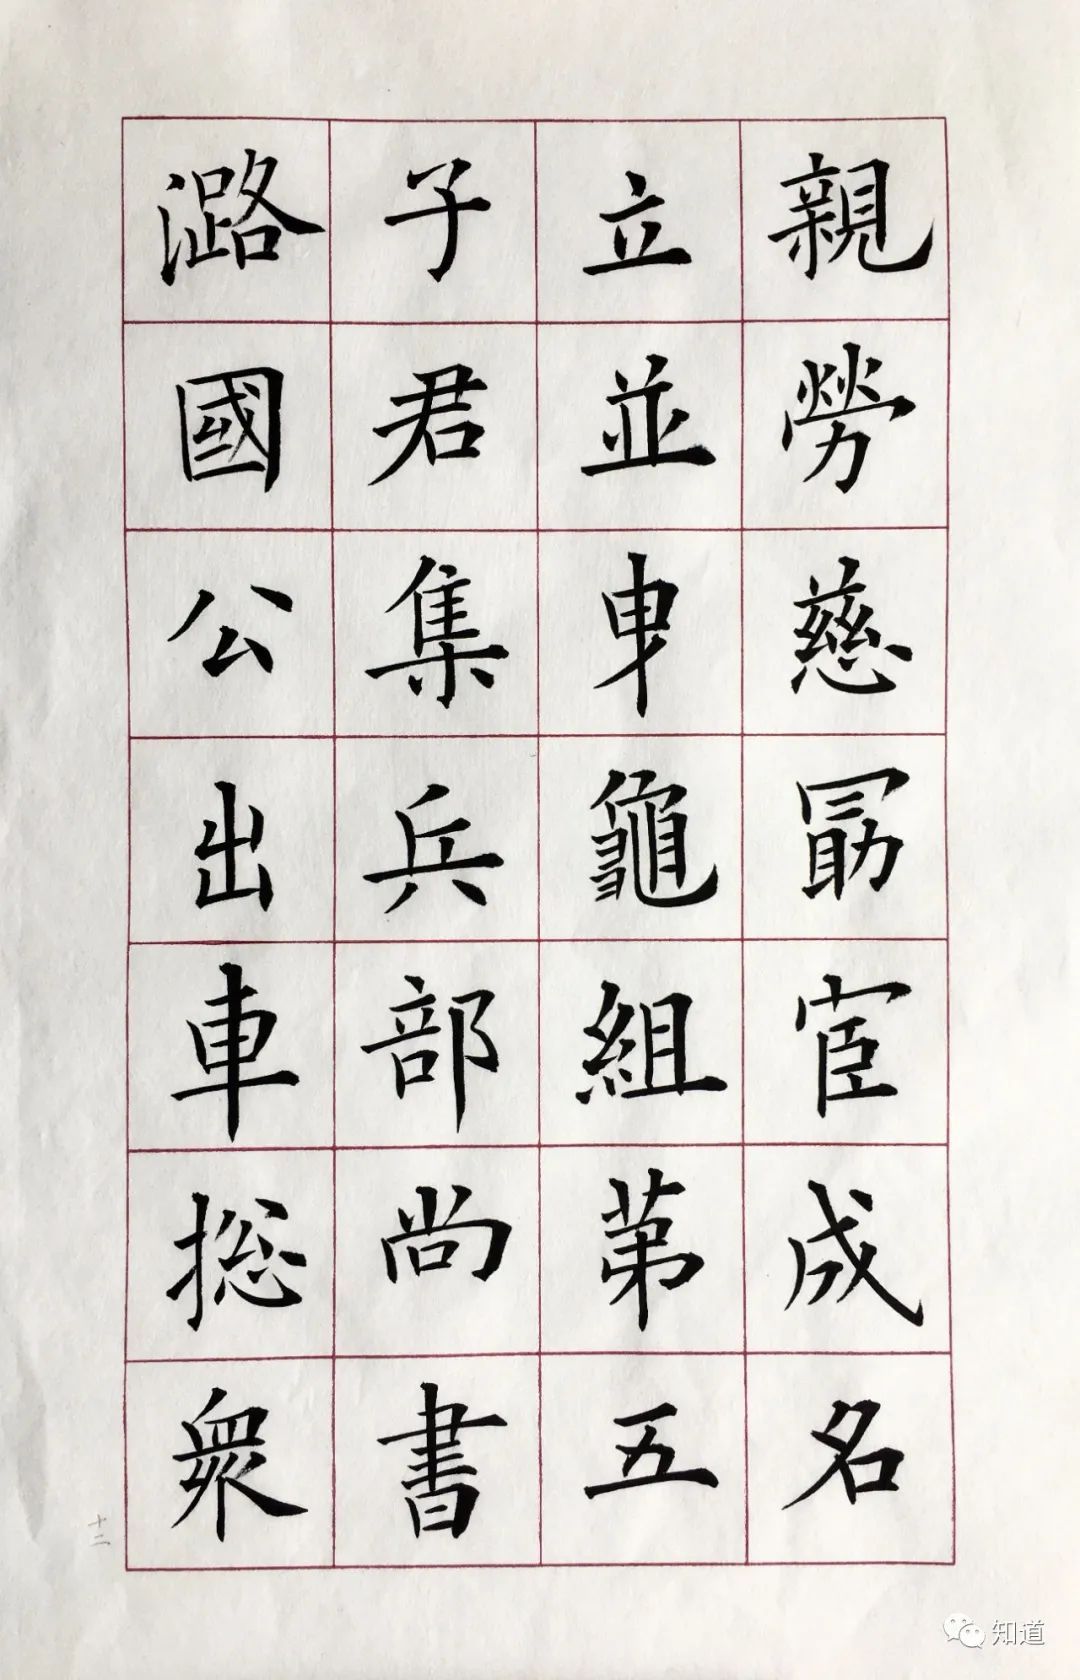 親勞慈勗宦成名
立並曳龜組第五
子君集兵部尚書
潞國公出車捴衆
十二
知道